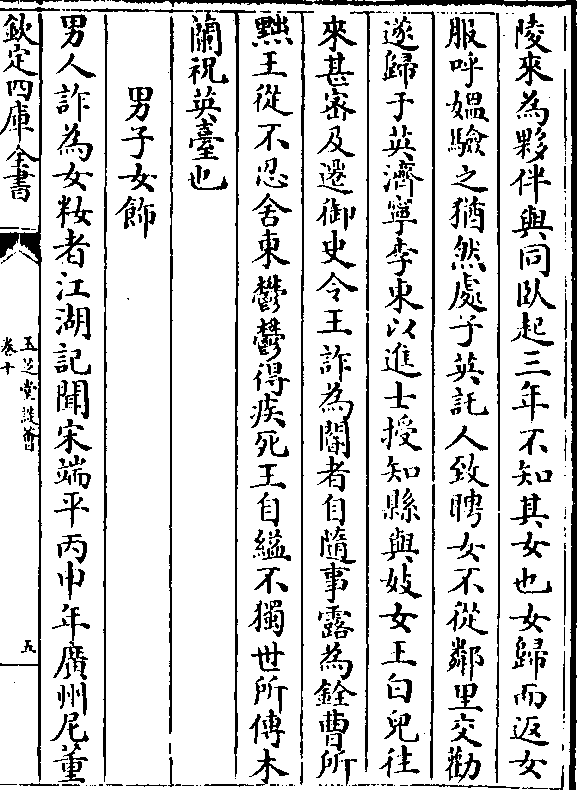 陵來為夥伴與同臥起三年不知其女也女歸而返女
服呼媼驗之猶然處子英託人致聘女不從鄰里交勸
遂歸于英濟寧李東以進士授知縣與妓女王曰兒往
來甚宻及遷御史令王詐為閽者自隨事露為銓曹所
黜王從不忍舍東鬱鬱得疾死王自縊不獨世所傳木
蘭祝英臺也
男子女飾
男人詐為女粧者江湖記聞宋端平丙申年廣州尼董
欽定四庫全書
玉芝堂談薈
卷十
五